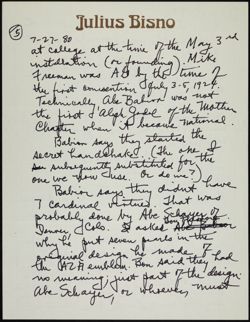 Julius Bisno
5
7-27-80
at college at the time of the May 3rd
installation (or founding) Mike
Freeman was AG by the time of
the first convention July 3-5, 1924.
Technically Abe Babior was not
the first Aleph Godol of the Mother
Chapter when it became national.
Babior says they started the
secret handshake! (The one I
subsequently substituted for the
one we now use. Or do we?)
Babior says they didn't have
7 cardinal virtues. That was
probably done by Abe
Denver, Colo. I asked
why he put seven pearls in the
original design he made of
the AZA emblem. Bon said they had
no meaning, just part of the design.
Abe Schayer, or whoever, must